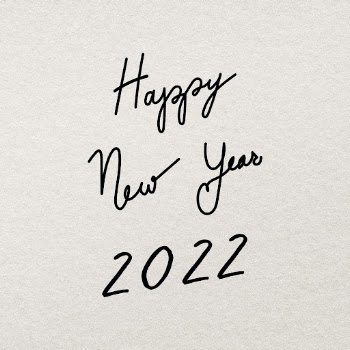 Happy
New Year
2022